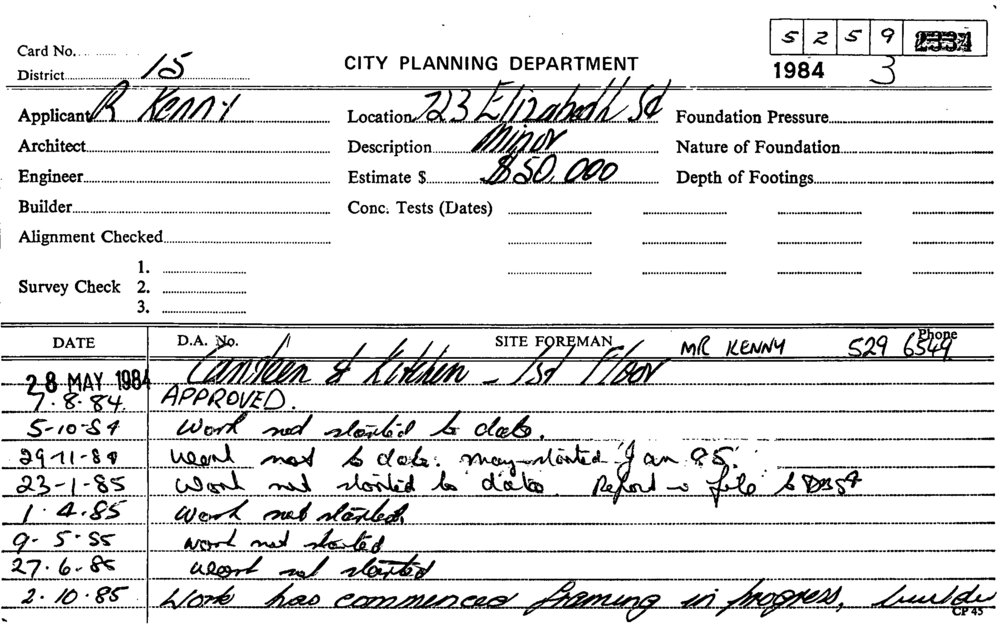 5 2 5 9
Card No.
District 15
CITY PLANNING DEPARTMENT
1984 3
Applicant R Kenny
Location 723 Elizabeth St
Foundation Pressure
Architect
Description Minor
Nature of Foundation
Engineer
Estimate $ $50,000
Depth of Footings
Builder
Conc. Tests (Dates)
Alignment Checked
1.
Survey Check 2.
3.
DATE D.A. No. SITE FOREMAN MR KENNY Phone 529 6549
28 MAY 1984 Canteen & Kitchen - 1st Floor
7.8.84. APPROVED.
5-10-84 Work not started to date.
29-11-84 Work not to date. may started Jan 85.
23-1-85 Work not started to date. Report file to
1.4.85 Work not started.
9-5-85 work not started
27.6.85 Work not started
2.10.85 Work has commenced framing in progress,
CP 45